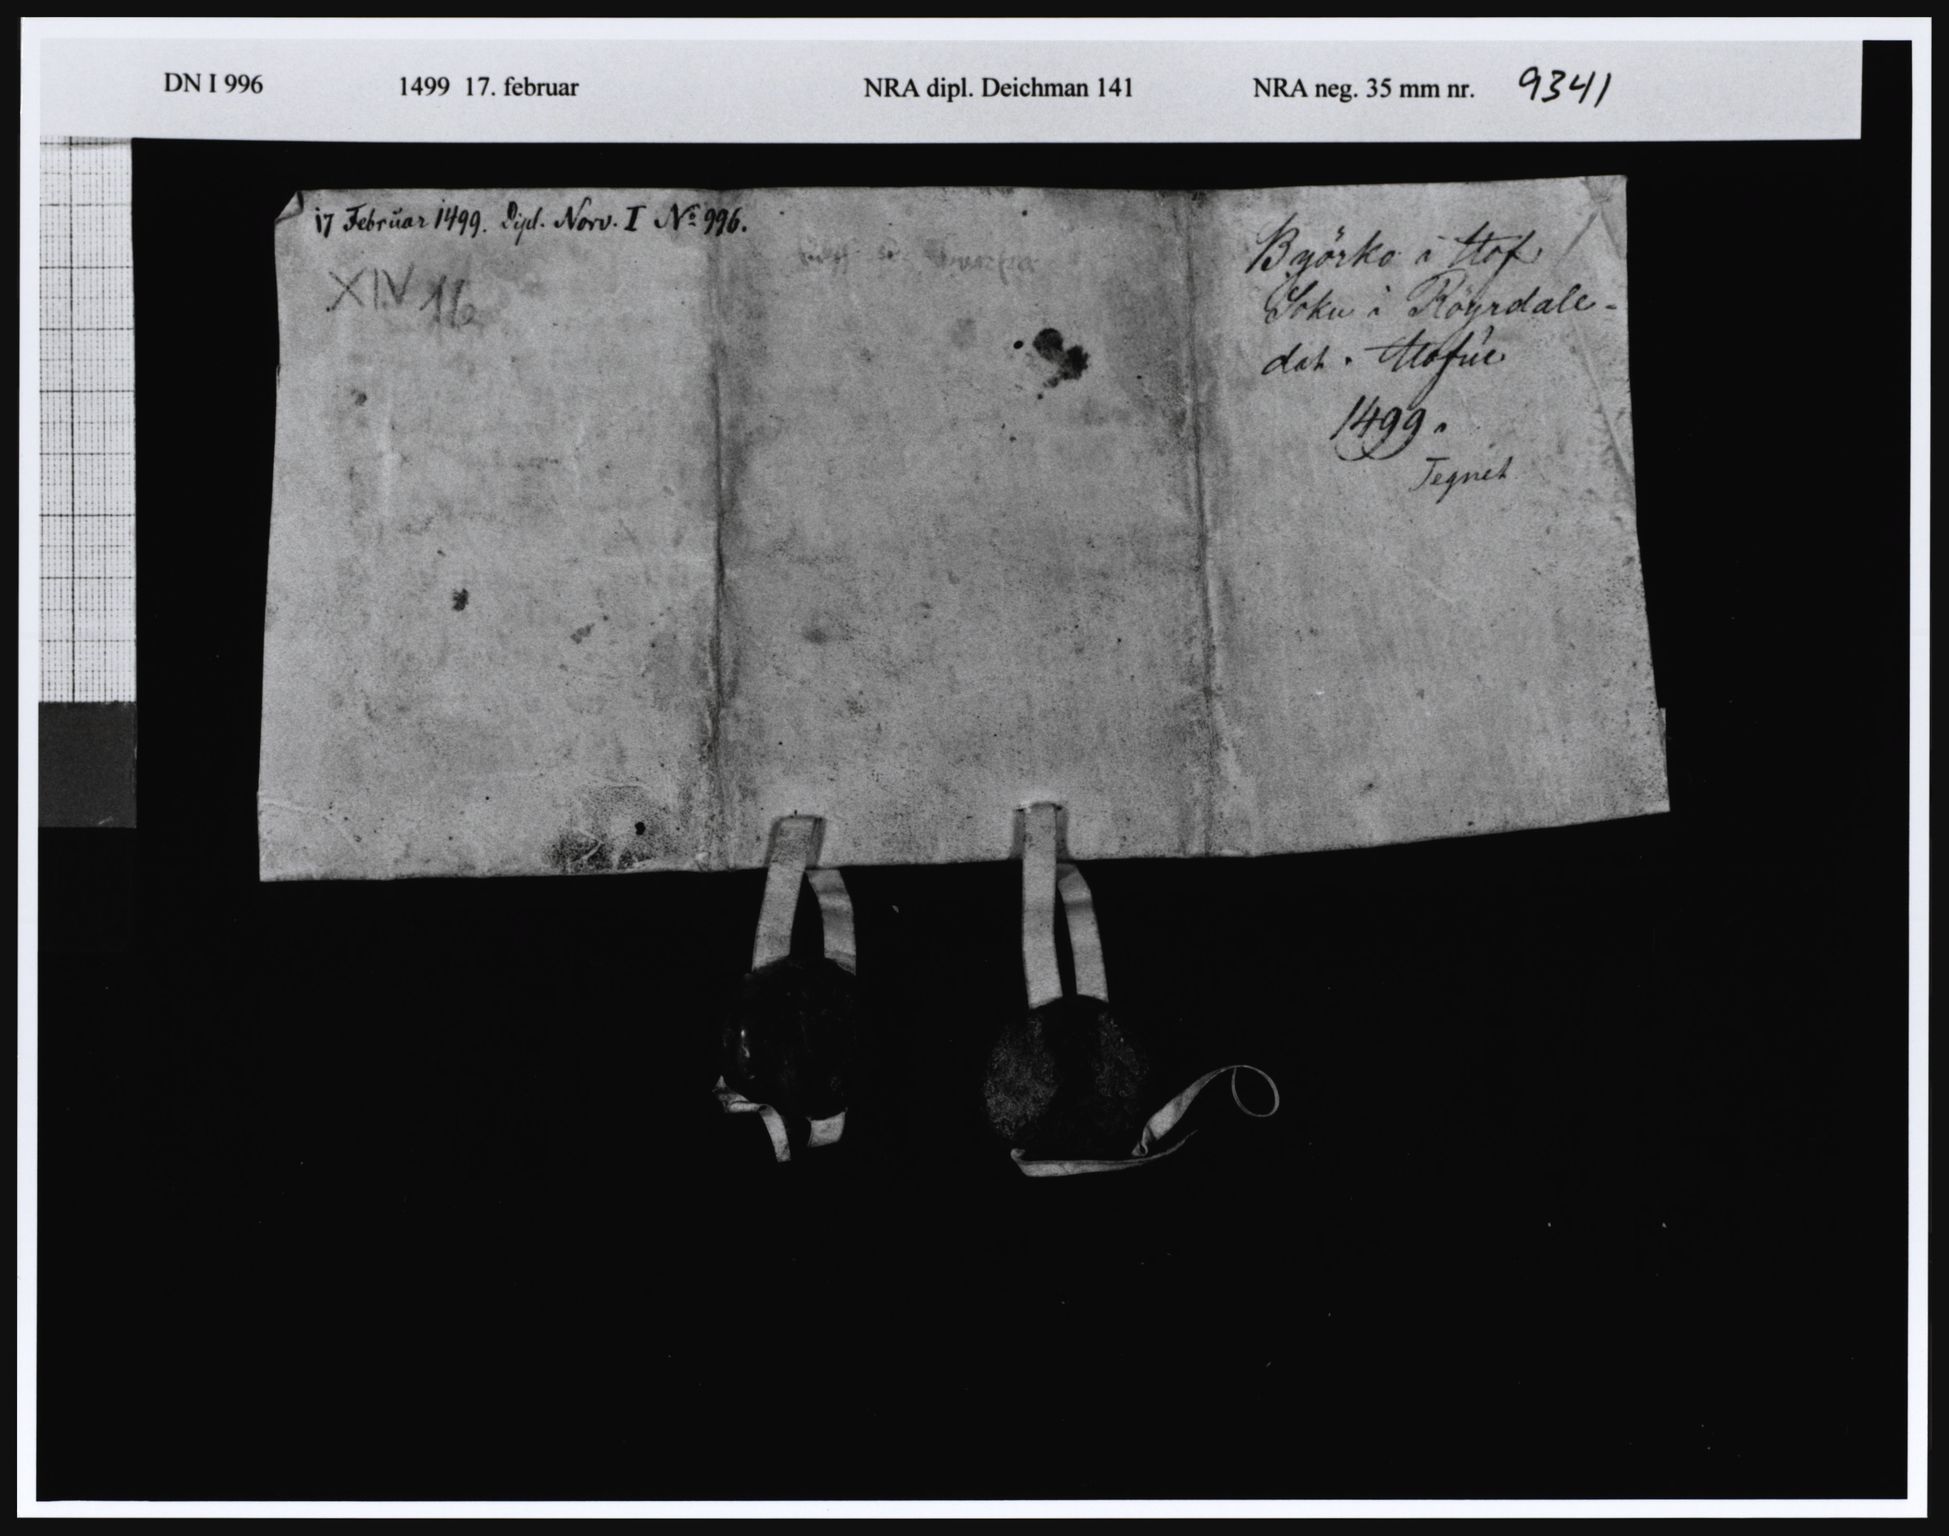 DN I 996 1499 17. februar NRA dipl. Deichman 141 NRA neg. 35 mm nr. 9341
17 Februar 1499. Dipl. Norv. I No 996.
XIV 16
Byörko i Hof
Soku i Röyrdale-
dat. Hofue
1499.
Tegnet